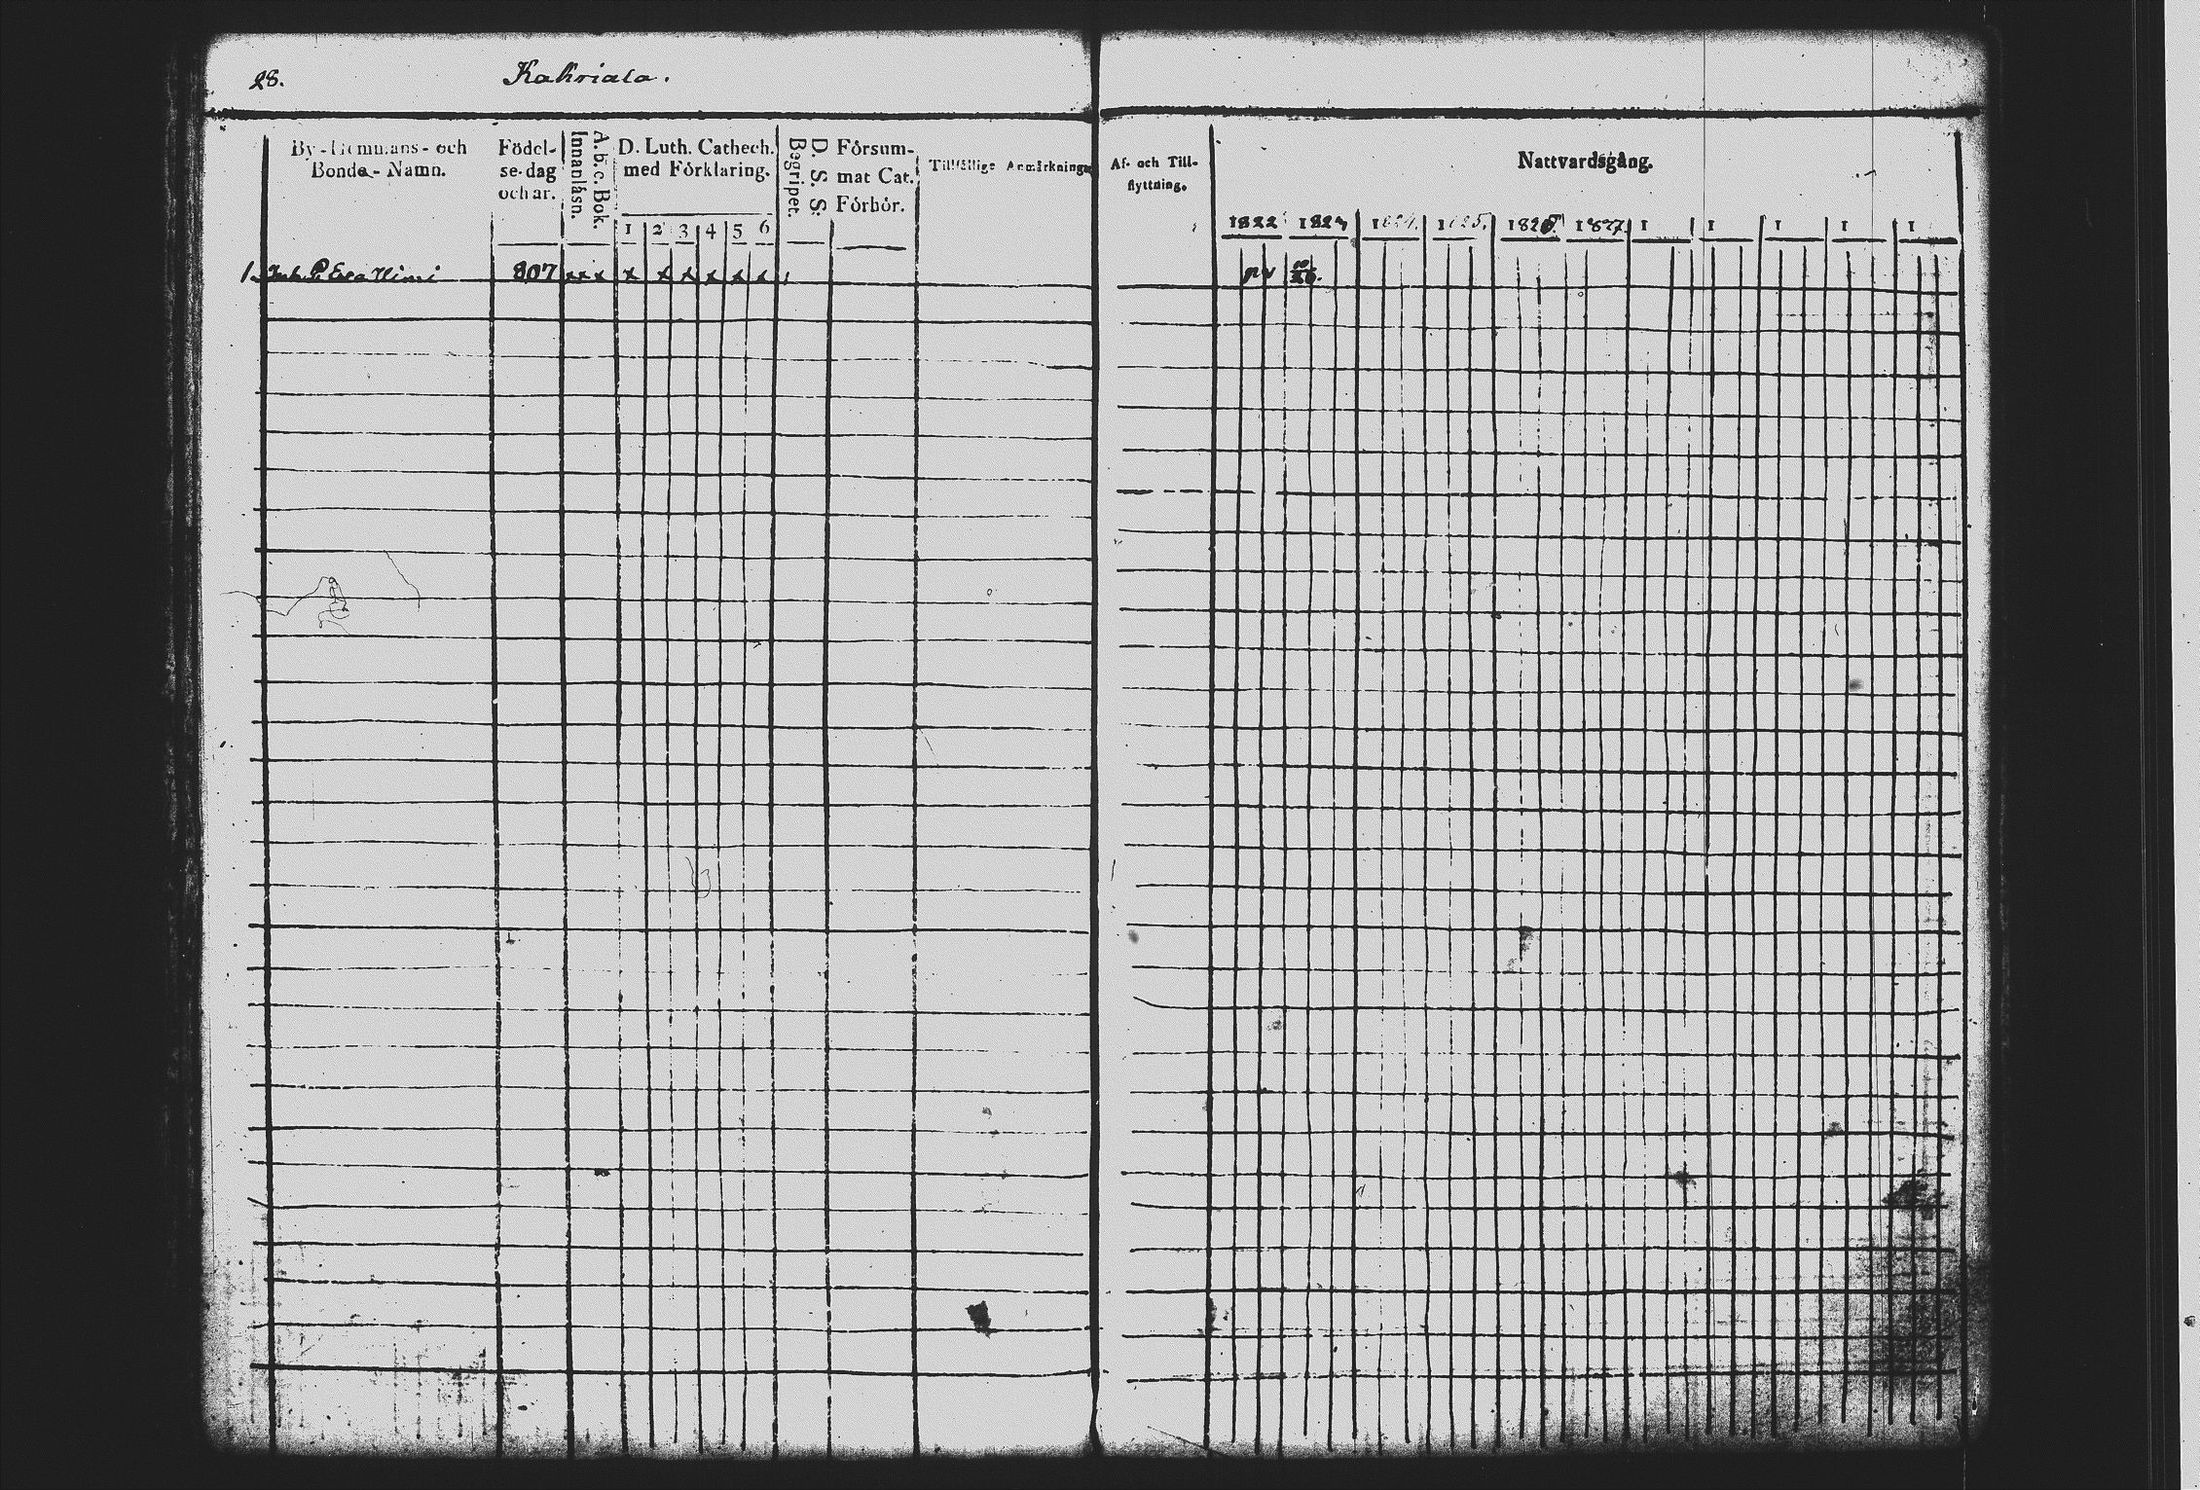 28. Kakriala.
By-Hemmans- och
Bonde-Namn.
Födel-
se-dag
och år.
A.b.c. Bok.
Innanläsn.
D. Luth. Cathech.
med Förklaring.
1 2 3 4 5 6
D. S. S:
Begripet.
Försum-
mat Cat.
Förhör.
Tillfällige Anmärkningar
Af- och Till-
flyttning.
Nattvardsgång.
1822 1823 1824. 1825. 1826 1827. 1 1 1 1 1
1. 807 x x x x x x x x x